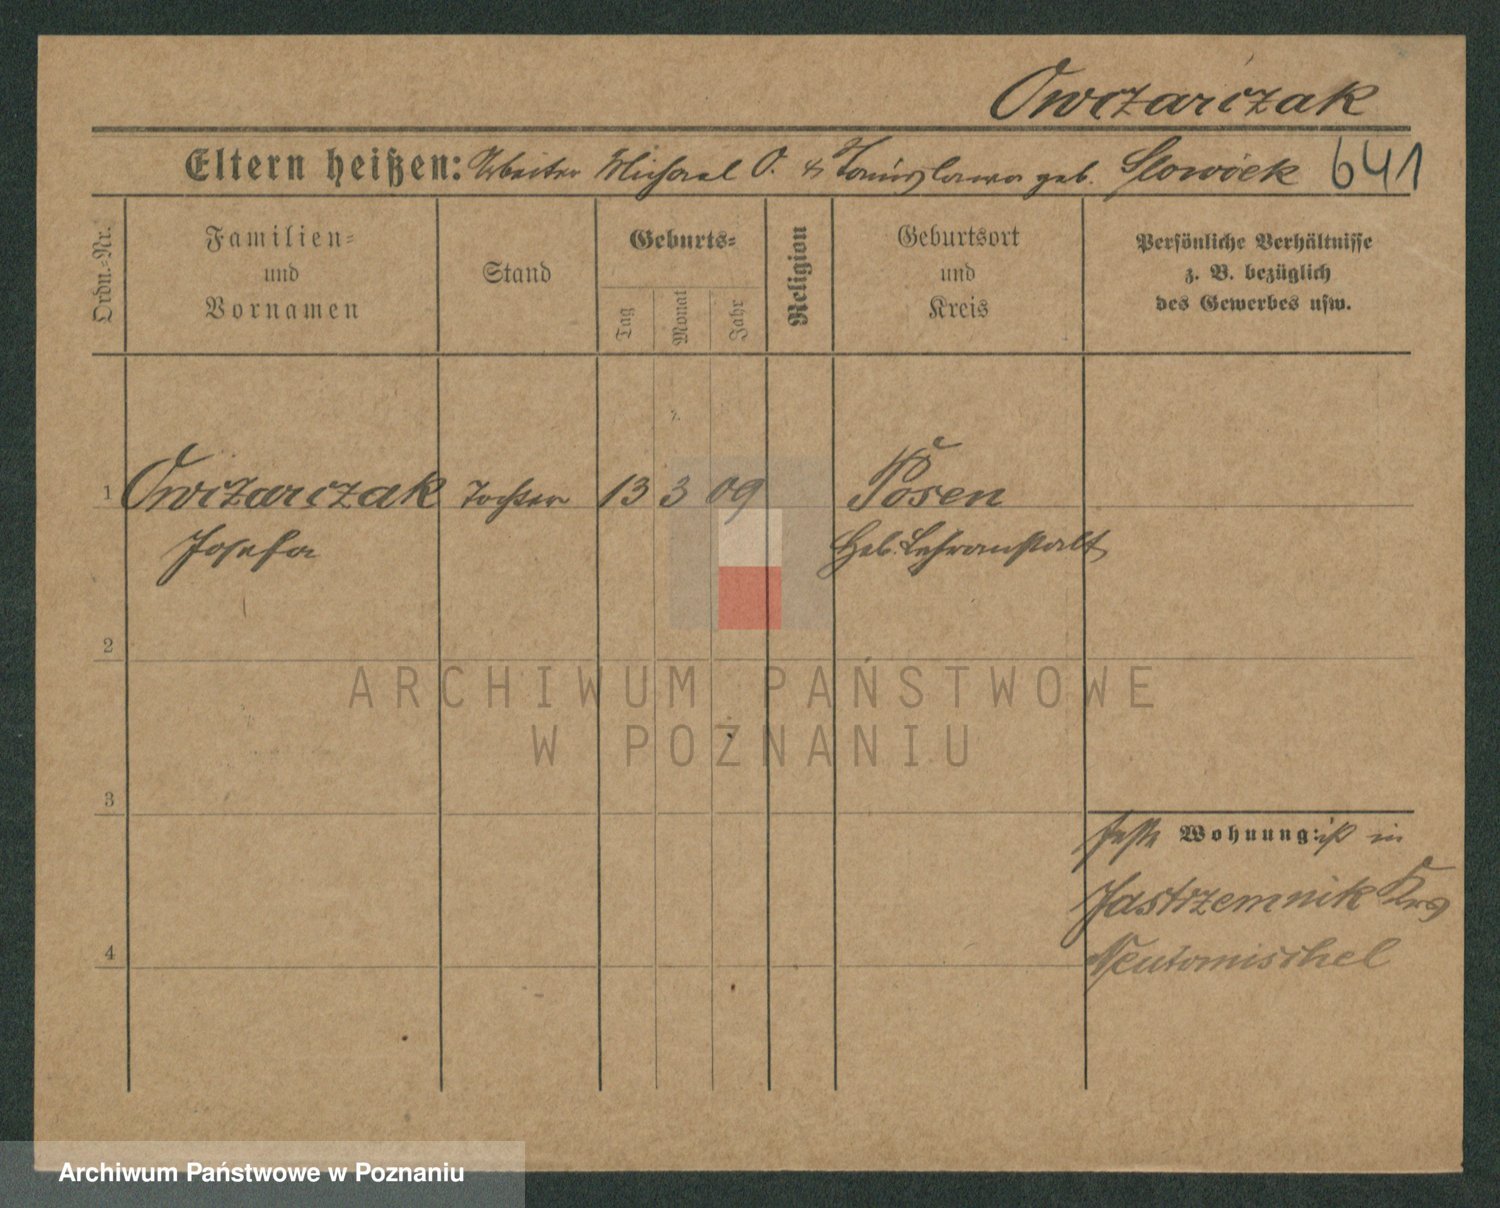 Owczarczak
Eltern heißen: Arbeiter Michael O. & Stanislawa geb. Slowiek 641
Ordn.-Nr.
Familien-
und
Vornamen
Stand
Geburts-
Tag
Monat
Jahr
Religion
Geburtsort
und
Kreis
Persönliche Verhältnisse
z. B. bezüglich
des Gewerbes usw.
1 Owczarczak Tochter 13 3 09 Posen
Josefa Heb. Lehranstalt
2
ARCHIWUM PAŃSTWOWE
W POZNANIU
3
feste Wohnung: ist in
Jastrzemnik Krs
4 Neutomischel
Archiwum Państwowe w Poznaniu